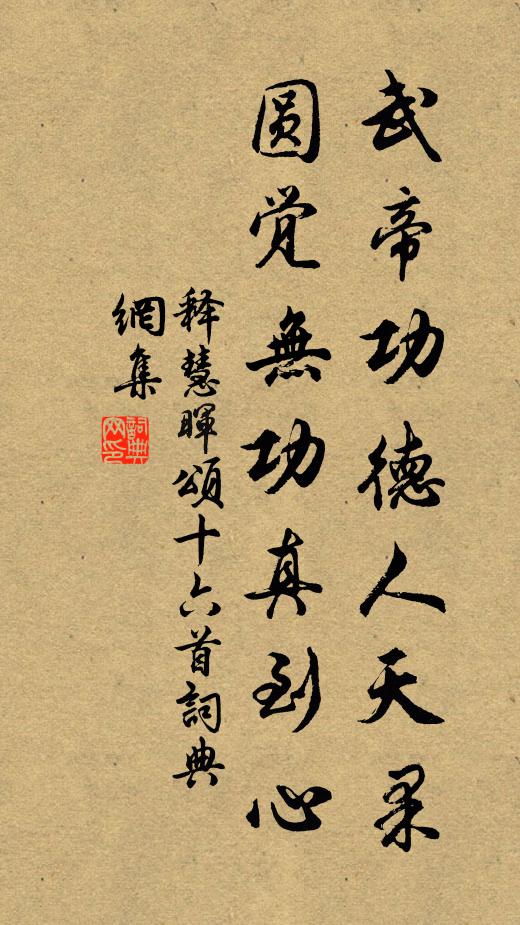 武帝功德人天果
圆觉無功真到心
释慧暉頌十六首詞典
網集
詞典
网印